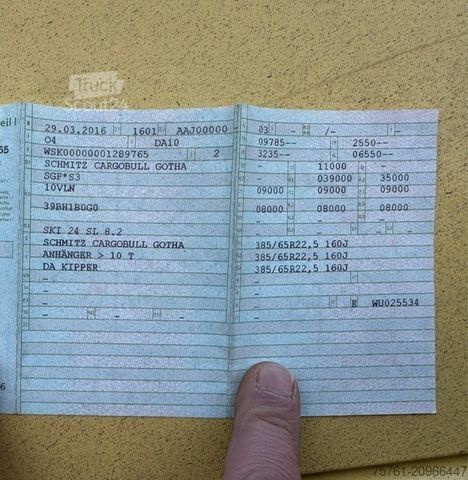 Truck
Scout24
eil I
55
6
29.03.2016 1601 AAJ00000 -
04 DA10
WSK00000001289765 2
SCHMITZ CARGOBULL GOTHA
SGF*S3
10VLN
39BH1B0G0
SKI 24 SL 8.2
SCHMITZ CARGOBULL GOTHA
ANHÄNGER > 10 T
DA KIPPER
- - - -
03 - - /- -
09785-- 2550--
3235-- 06550--
- 11000 -
- 039000 35000
09000 09000 09000
08000 08000 08000
- - - -
385/65R22,5 160J
385/65R22,5 160J
385/65R22,5 160J
-
-
- E WU025534
-
75761-20966447